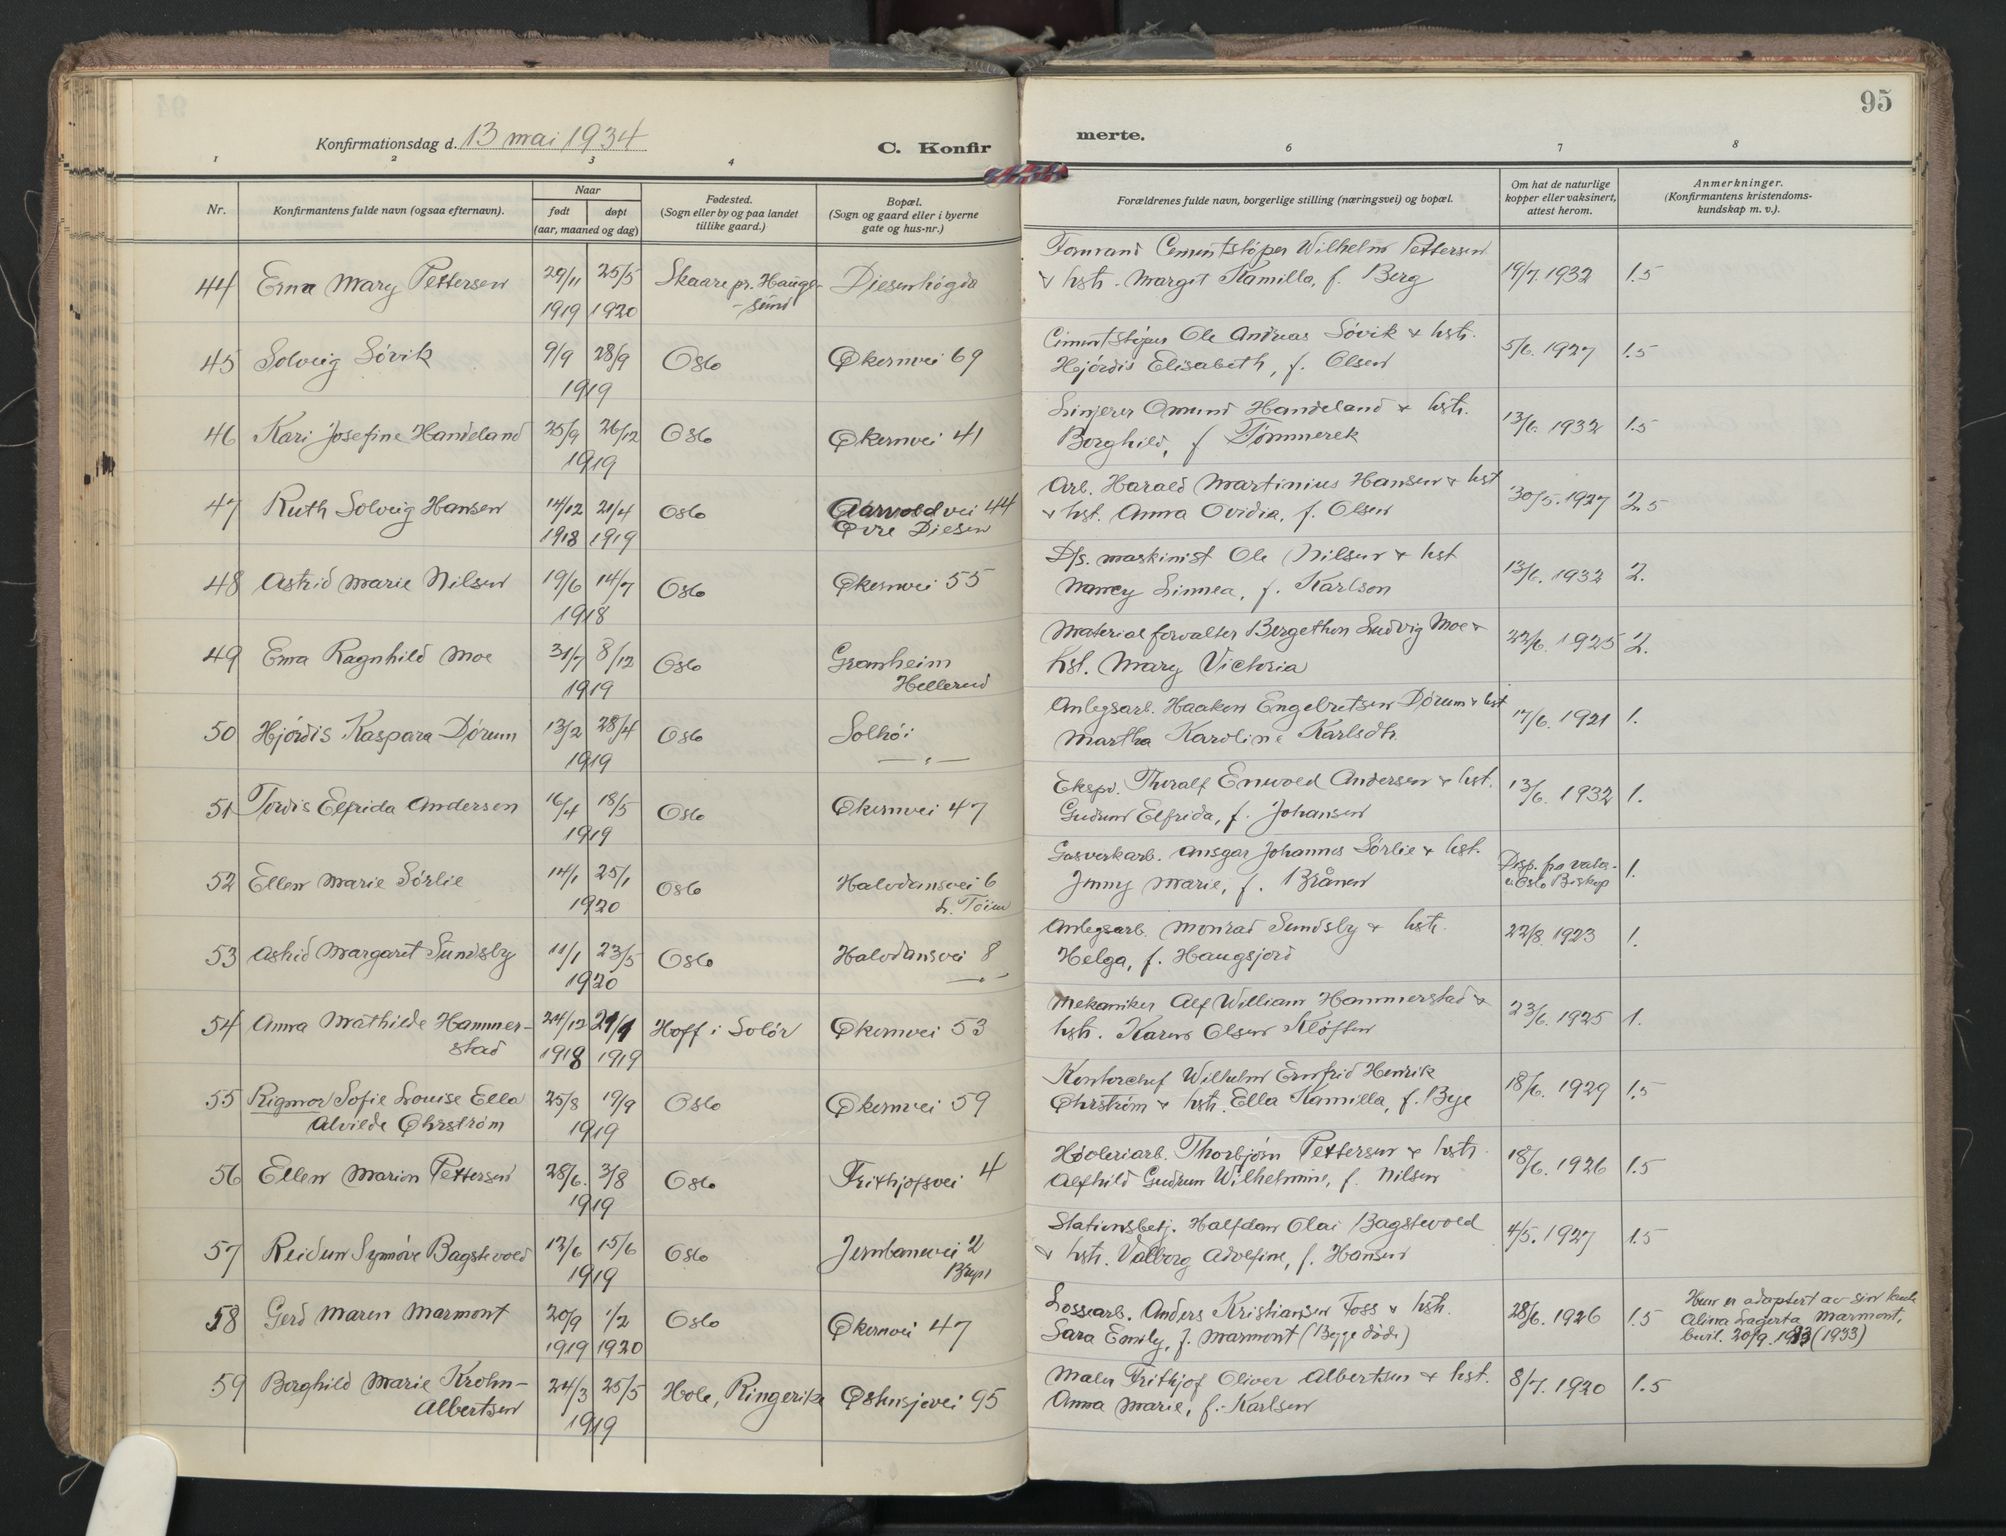 95
Konfirmationsdag d. 13 mai 1934
C. Konfir
merte.
1 2 3 4 6 7 8
Nr.
Konfirmantens fulde navn (ogsaa efternavn).
Naar
født døpt
(aar, maaned og dag)
Fødested.
(Sogn eller by og paa landet
tillike gaard.)
Bopæl.
(Sogn og gaard eller i byerne
gate og hus-nr.)
Forældrenes fulde navn, borgerlige stilling (næringsvei) og bopæl.
Om hat de naturlige
kopper eller vaksinert,
attest herom.
Anmerkninger.
(Konfirmantens kristendoms-
kundskap m. v.).
44 Erna Mary Pettersen 29/11 1919 25/5 1920 Skaare pr. Hauge-
-sund
Diesenhøgda
Formand Cementstøper Wilhelm Pettersen
& hstr. Margit Kamilla, f. Berg
19/7. 1932 1.5
45 Solveig Søvik 9/9 28/9 1919 Oslo Økernvei 69
Cementstøper Ole Andreas Søvik & hstr.
Hjørdis Elisabeth, f. Olsen
5/6. 1927 1.5
46 Kari Josefine Handeland 25/9 26/12 1919 Oslo Økernvei 41
Linjerer Omund Handeland & hstr.
Borghild, f Tømmerek
13/6. 1932 1.5
47 Ruth Solveig Hansen 14/12 1918 21/4 1919 Oslo Aarvoldvei 44
Øvre Diesen
Arb. Harald Martinius Hansen & hst
& hst. Anna Ovidia, f. Olsen
30/5. 1927 2.5
48 Astrid Marie Nilsen 19/6 14/7 1918 Oslo Økernvei 55
D/s. maskinist Ole Nilsen & hst
Nancy Linnea, f. Karlson
13/6. 1932 2.
49 Erna Ragnhild Moe 31/7 8/12 1919 Oslo Granheim
Hellerud
Materialforvalter Bergethon Ludvig Moe &
hst. Mary Victoria
22/6. 1925 2.
50 Hjørdis Kaspara Dørum 13/2 28/4 1919 Oslo Solhøi
— „ —
Anlegsarb. Haakon Engebretsen Dørum & hst
Martha Karoline Karlsdtr.
17/6. 1921 1.
51 Tordis Elfrida Andersen 16/4 18/5 1919 Oslo Økernvei 47
Ekspd. Thoralf Enevold Andersen & hst.
Gudrun Elfrida, f. Johansen
13/6. 1932 1.
52 Ellen Marie Sørlie 14/1 25/1 1920 Oslo Halvdansvei 6
L. Tøien
Gasverkarb. Ansgar Johannes Sørlie & hst.
Jenny Marie, f. Brånen
Disp. fra
Oslo Biskop 1.
53 Astrid Margaret Sundsby 11/1 23/5 1920 Oslo Halvdansvei 8
— „ —
Anlegsarb. Monrad Sundsby & hstr.
Helga, f. Haugsjord
22/8. 1923 1.
54 Anna Mathilde Hammer-
stad
24/12 1918 21/4 1919 Hoff i Solør Økernvei 53
Mekaniker Alf William Hammerstad &
hstr. Karen Olsen Kløften
23/6. 1925 1.
55 Rigmor Sofie Louise Ella
Alvilde Øhrstrøm
25/8 19/9 1919 Oslo Økernvei 59
Kontorchef Wilhelm Ernfrid Henrik
Øhrstrøm & hstr. Ella Kamilla, f. Bye
18/6. 1929 1.5
56 Ellen Marion Pettersen 28/6. 3/8 1919 Oslo Frithjofsvei 4
Høvleriarb. Thorbjørn Pettersen & hstr.
Alfhild Gudrun Wilhelmine, f. Nilsen
18/6. 1926 1.5
57 Reidun Synnøve Bagstevold 13/6 15/6 1919 Oslo Jernbanevei 2
Bryn
Stationsbetj. Halfdan Olai Bagstevold
& hstr. Valborg Adolfine, f. Hansen
4/5. 1927 1.5
58 Gerd Maren Marmont 20/9 1919 1/2 1920 Oslo Økernvei 47
Lossearb. Anders Kristiansen Foss & hstr.
Sara Emily, f. Marmont (Begge døde)
28/6. 1926 1.5
Hun er adoptert av sin tante
Alina Lagerta Marmont,
bevil. 20/9. 1933 (1933)
59 Borghild Marie Krohn-
Albertsen
24/3 25/5 1919 Hole, Ringerike Østensjøvei 95
Maler Frithjof Oliver Albertsen & hst.
Anna Marie, f. Karlsen
8/7. 1920 1.5